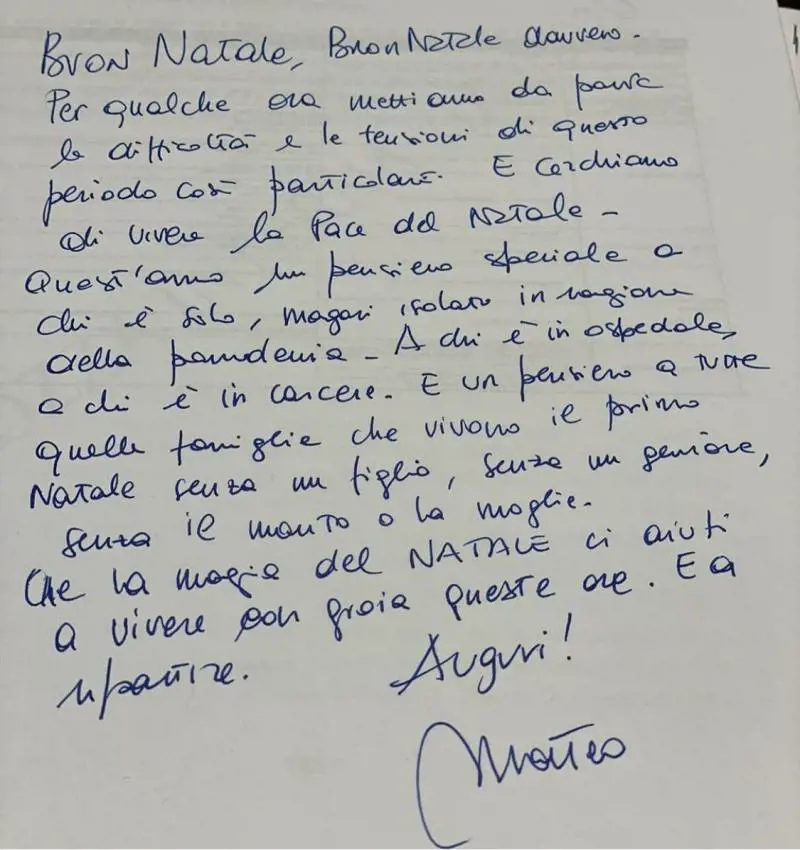 Buon Natale, Buon Natale davvero.
Per qualche ora mettiamo da parte
le difficoltà e le tensioni di questo
periodo così particolare. E cerchiamo
di vivere la Pace del Natale -
Quest'anno un pensiero speciale a
chi è solo, magari isolato in ragione
della pandemia - A chi è in ospedale,
a chi è in carcere. E un pensiero a tutte
quelle famiglie che vivono il primo
Natale senza un figlio, senza un genitore,
senza il marito o la moglie.
Che la magia del NATALE ci aiuti
a vivere con gioia queste ore. E a
ripartire.
Auguri!
Matteo